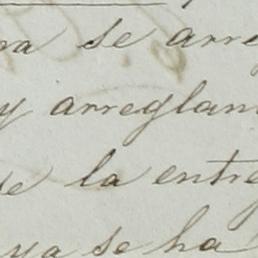 ra se arre
y arreglan
se la entre
ya se ha